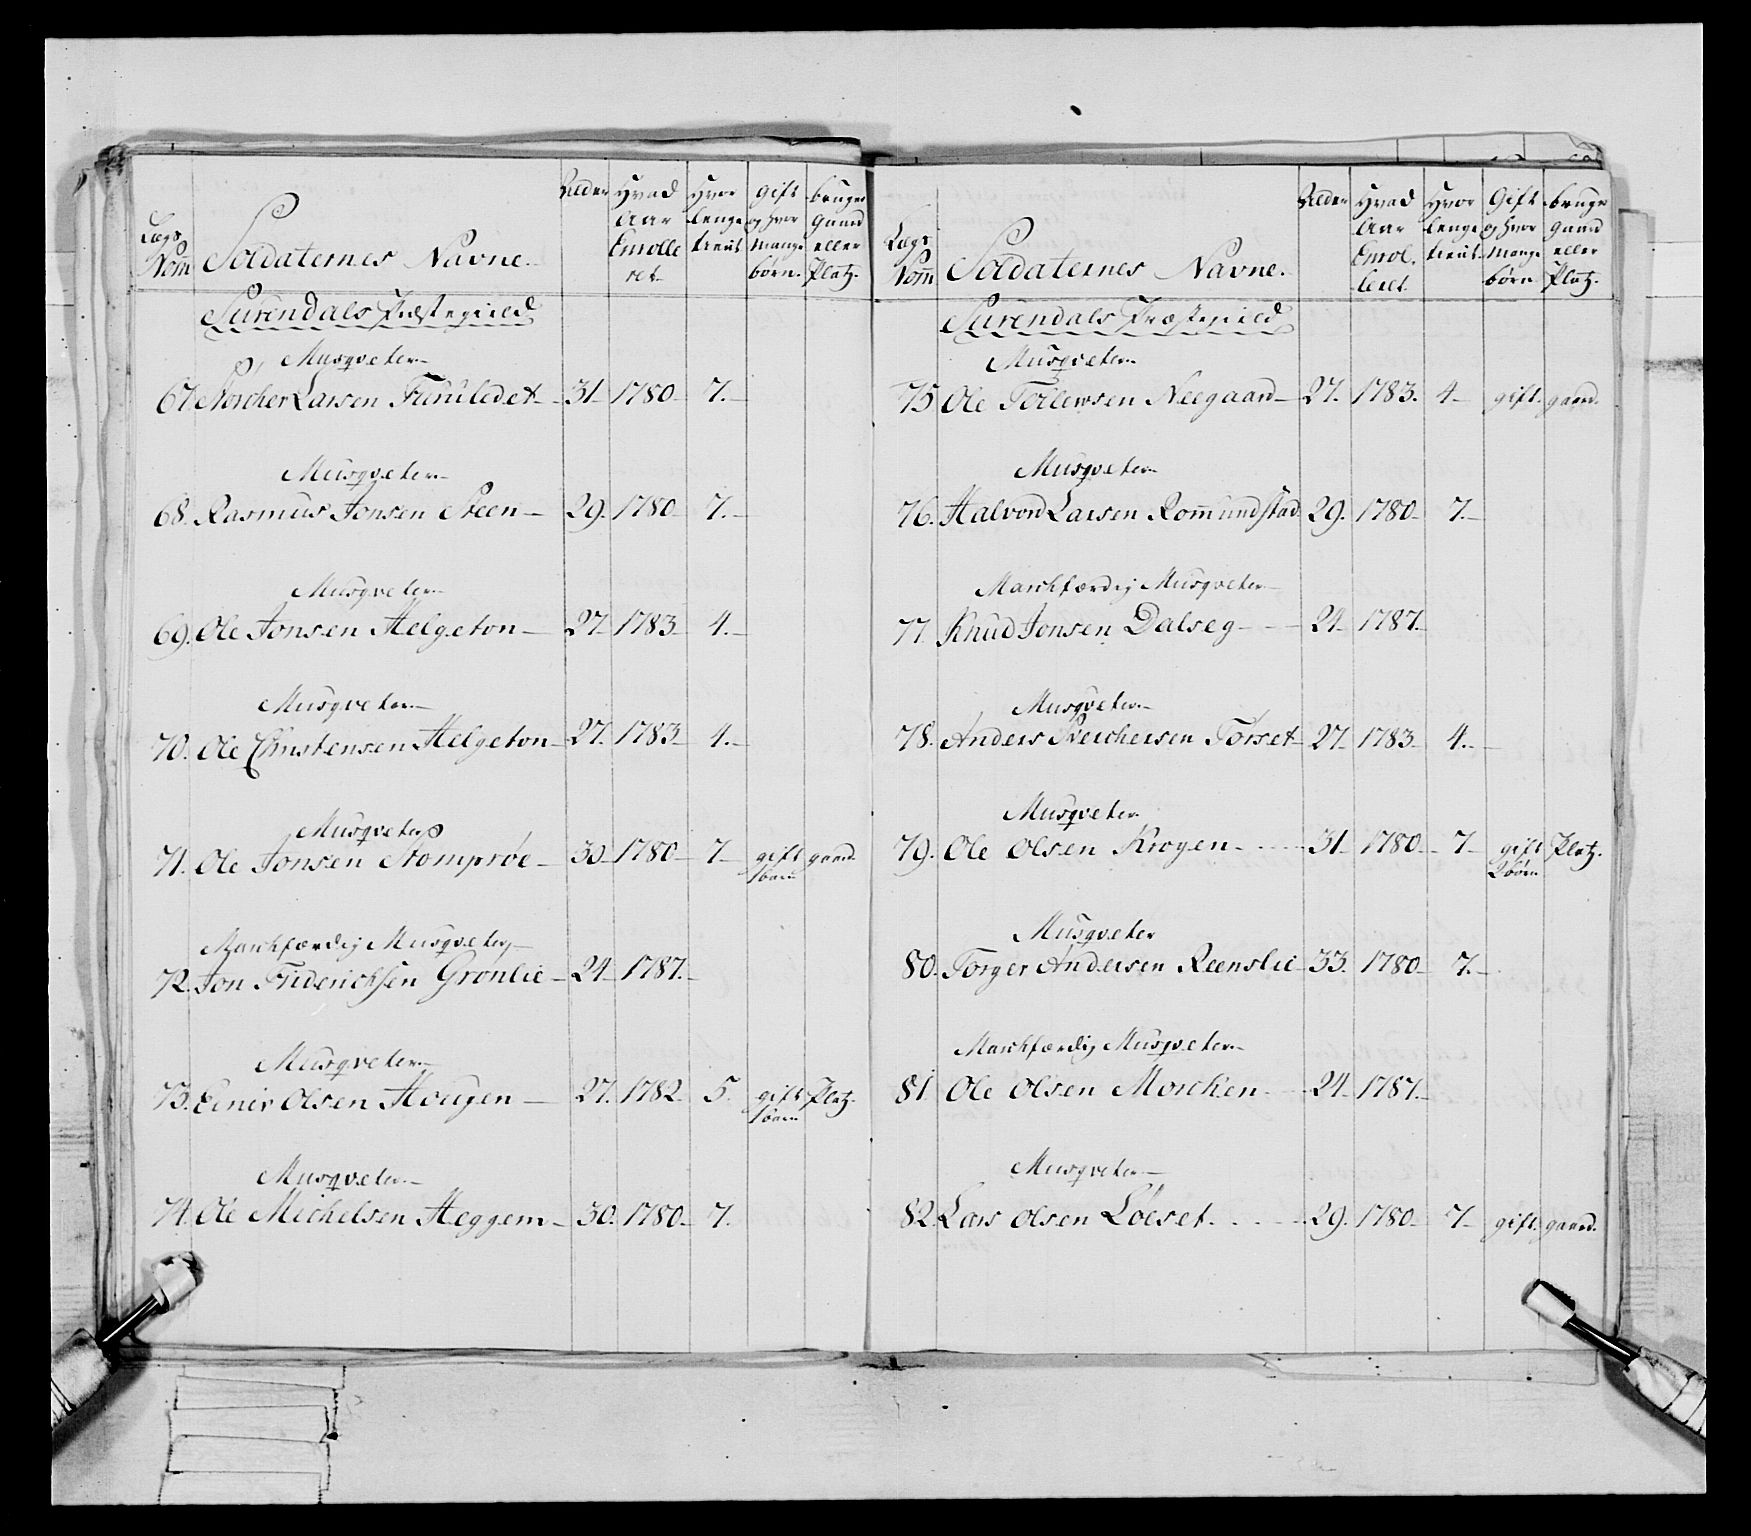 Lægs Nom̅ | Soldaternes Navne. | Alder | Hvad Aar Enrolleret | Hvor lenge tient | gift og hvor mange børn. | bruger Gaard eller Platz.
Surendals Præstegield
Musqveter
67. Larsen 31 1780 7.
Musqveter
68. Rasmus Jonsen Steen 29. 1780 7.
Musqveter
69. Ole Jonsen Helgeton 27 1783 4.
Musqveter
70. Ole Christensen Helgeton 27. 1783 4.
Musqveter
71. Ole Jonsen Stomprøe 30 1780 7 gift gaard.
1 barn
Marchfærdig Musqveter
72. Jon Friderichsen Grønlie 24 1787.
Musqveter
73. Einer Olsen Hougen 27. 1782 5. gift Platz.
1 barn
Musqveter
74. Ole Michelsen Heggem 30. 1780 7.
Lægs Nom̅ | Soldaternes Navne. | Alder | Hvad Aar Enrolleret | Hvor lenge tient | Gift og hvor mange børn | bruger gaard eller Platz.
Surendals Præstegield
Musqveter
75 Ole Tollewsen Neegaard 27. 1783. 4 gift. gaard.
Musqveter
76. Halvord Larsen Rom̅undstad 29. 1780 7.
Marchfærdig Musqveter
77. Knud Jonsen Dalseg 24 1787.
Musqveter
78. Anders Torset 27 1783 4.
Musqveter
79. Ole Olsen Krogen 31 1780 7 gift Platz.
2 børn
Musqveter
80. Torger Andersen Reenslie 33. 1780 7.
Marchfærdig Musqveter
81 Ole Olsen Morcken 24 1787.
Musqveter
82. Lars Olsen Løeset 29. 1780 7 gift. gaard.